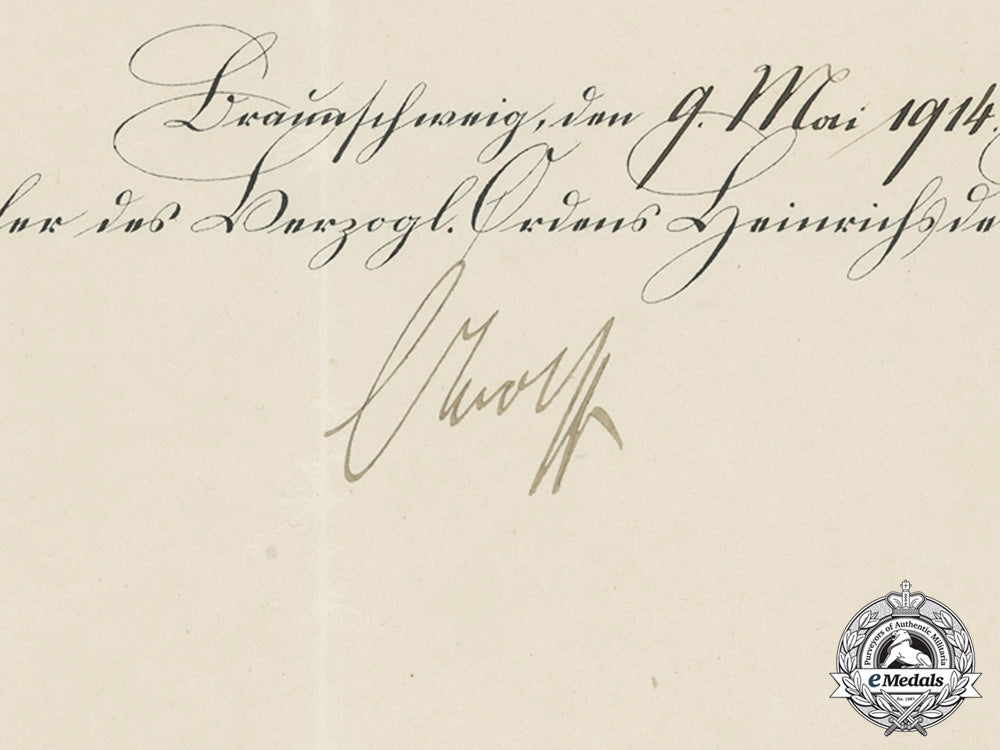 Braunschweig, den 9. Mai 1914.
ler des Herzogl. Ordens Heinrichs de
Wolff
Purveyors of Authentic Militaria
eMedals